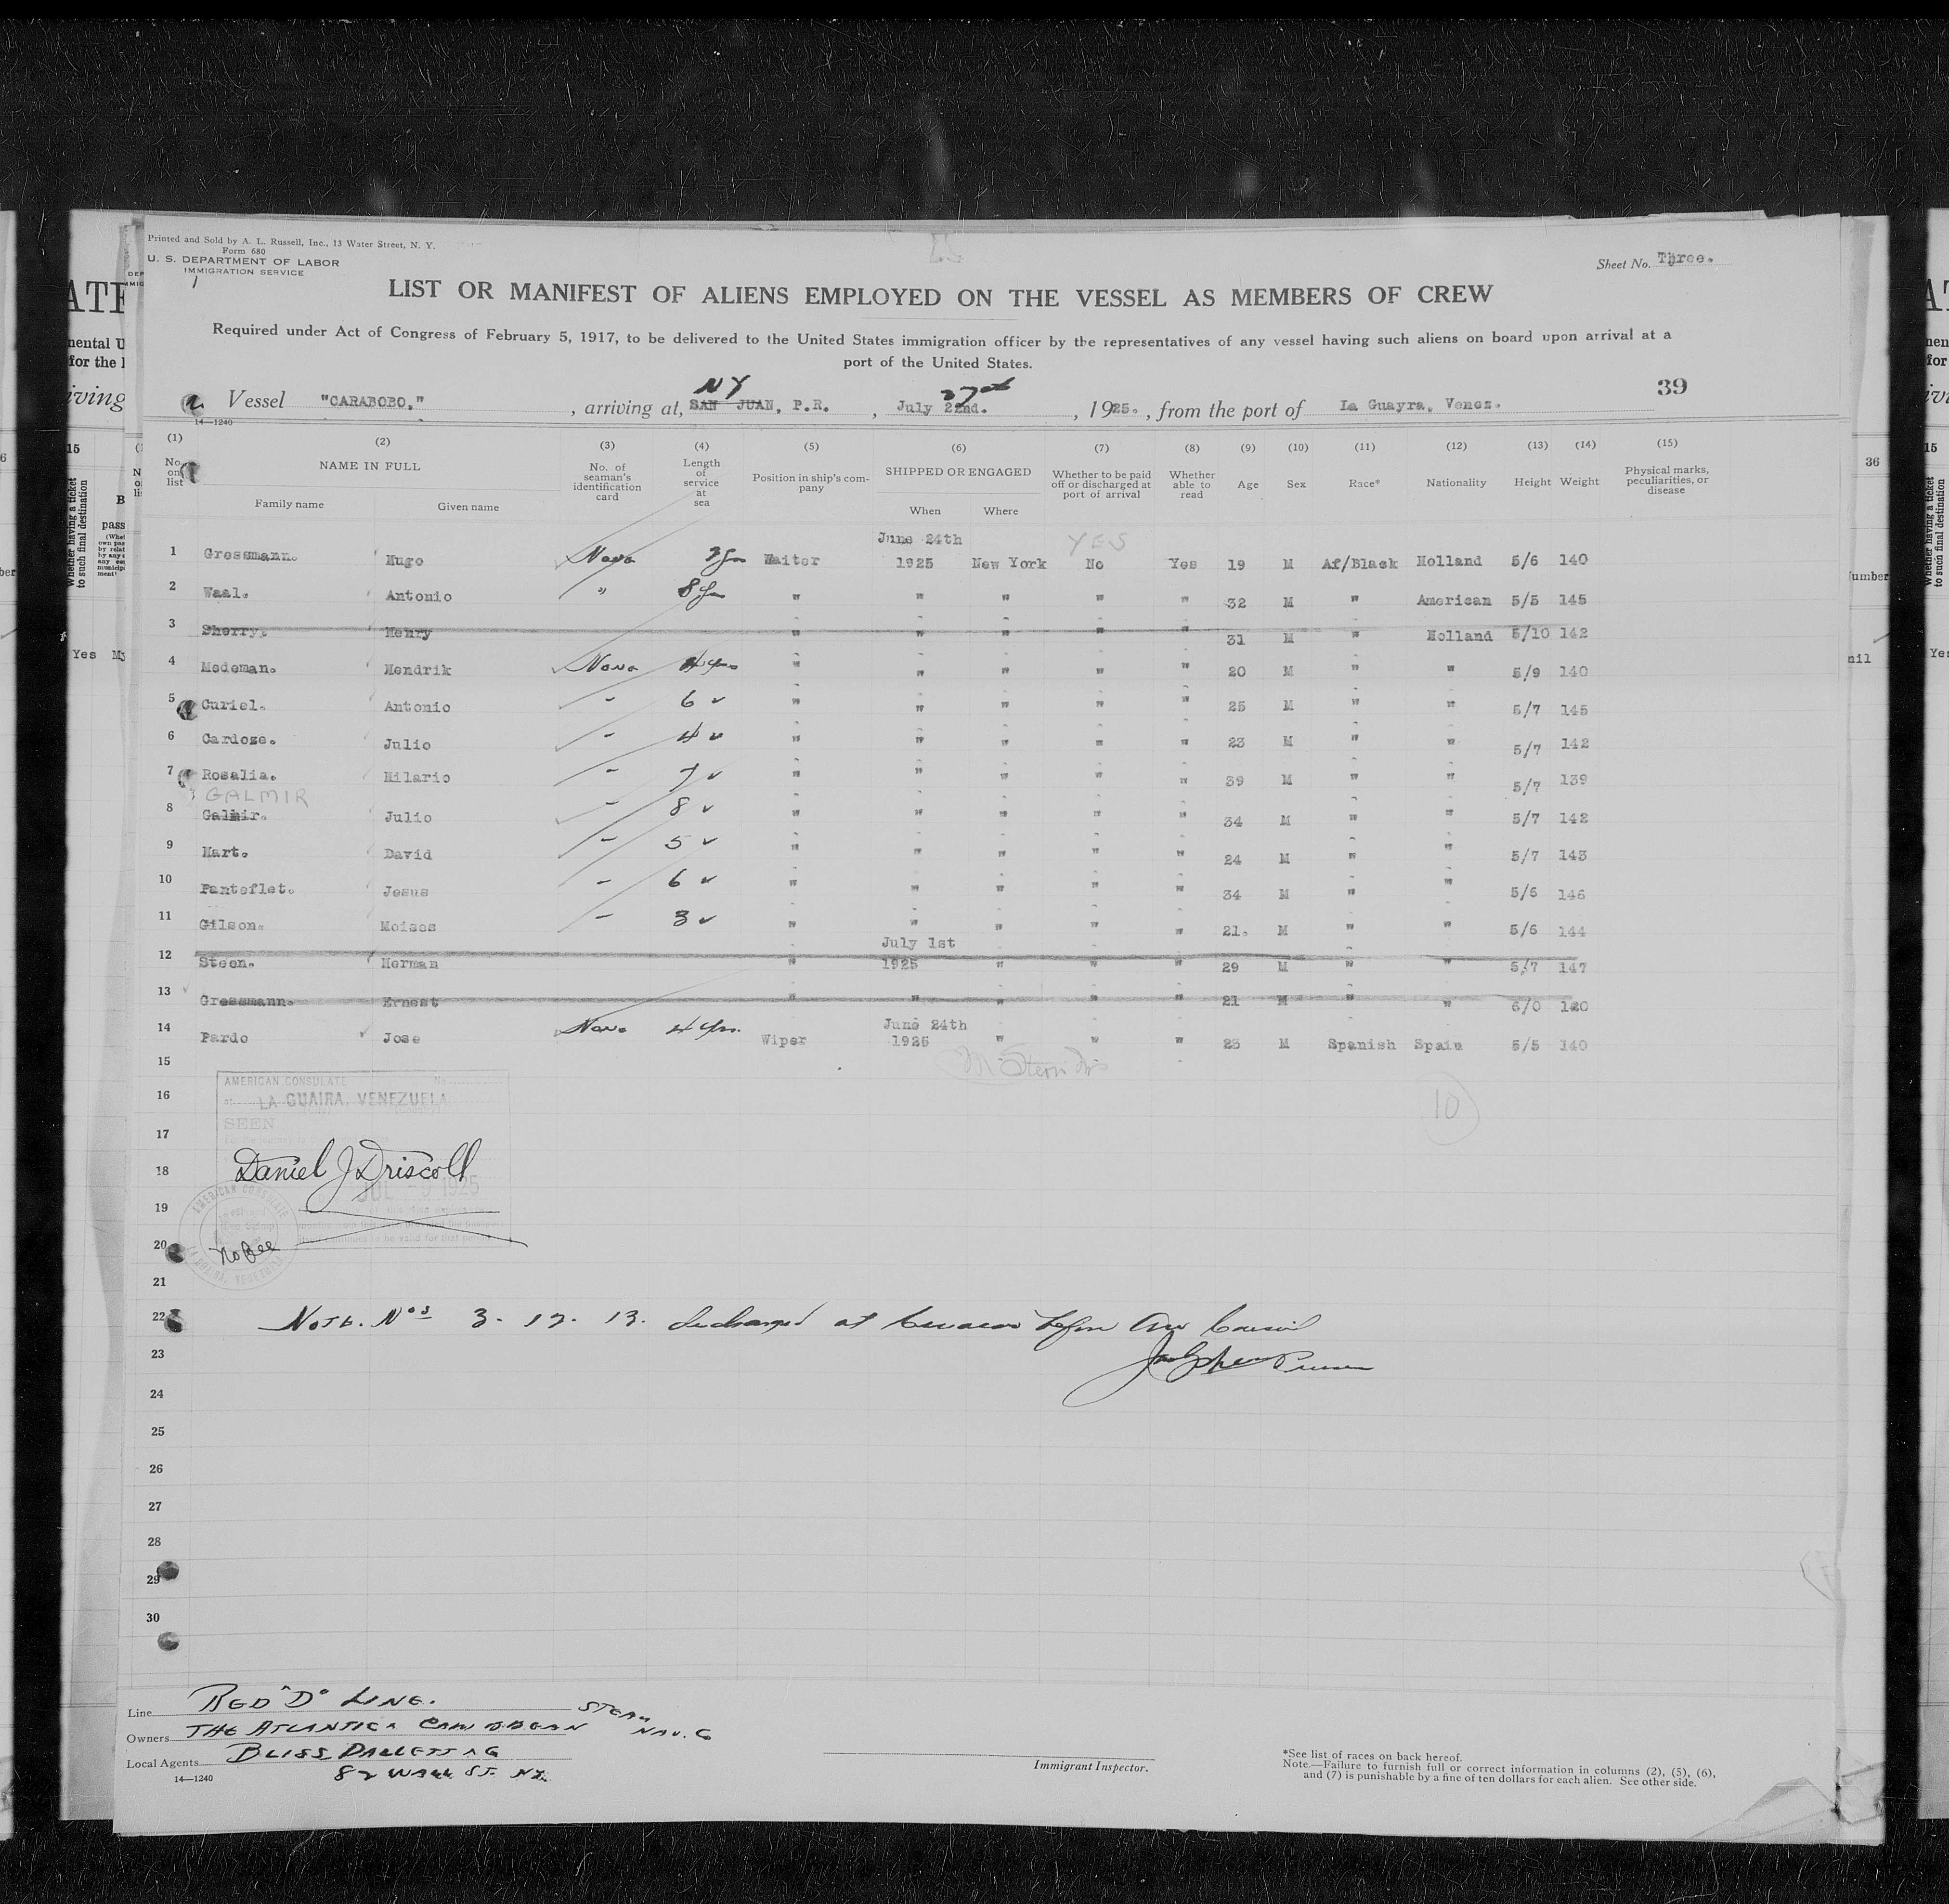 Printed and Sold by A. L. Russell, Inc., 13 Water Street, N. Y.
Form 680
U. S. DEPARTMENT OF LABOR
IMMIGRATION SERVICE
Sheet No. Three.
LIST OR MANIFEST OF ALIENS EMPLOYED ON THE VESSEL AS MEMBERS OF CREW
Required under Act of Congress of February 5, 1917, to be delivered to the United States immigration officer by the representatives of any vessel having such aliens on board upon arrival at a
port of the United States.
NY 27th
39
Vessel "CARABOBO," , arriving at, SAN JUAN, P.R. , July 22nd. , 1925. , from the port of La Guayra, Venez.
14—1240
(1) (2) (3) (4) (5) (6) (7) (8) (9) (10) (11) (12) (13) (14) (15)
No. on list NAME IN FULL Family name Given name No. of seaman's identification card Length of service at sea Position in ship's company SHIPPED OR ENGAGED When Where Whether to be paid off or discharged at port of arrival Whether able to read Age Sex Race* Nationality Height Weight Physical marks, peculiarities, or disease
June 24th YES
1 Gressmann. Hugo None Waiter 1925 New York No Yes 19 M Af/Black Holland 5/6 140
2 Waal. Antonio " 8 " " " " " 32 M " American 5/5 145
3 Sherry. Henry " " " " " 31 M " Holland 5/10 142
4 Medeman. Hendrik None 4 yrs " " " " " 20 M " " 5/9 140
5 Curiel. Antonio - 6 " " " " " 25 M " " 5/7 145
6 Cardoze. Julio - 4 " " " " " 23 M " " 5/7 142
7 Rosalia. Hilario - 7 " " " " " 39 M " " 5/7 139
GALMIR
8 Galmir. Julio - 8 " " " " " 34 M " " 5/7 142
9 Mart. David - 5 " " " " " 24 M " " 5/7 143
10 Panteflet. Jesus - 6 " " " " " 34 M " " 5/6 146
11 Gilson. Moises - 3 " " " " " 21. M " " 5/6 144
July 1st
12 Steen. Herman " 1925 " " " 29 M " " 5/7 147
13 Gressmann. Ernest " " " " " 21 M " " 6/0 120
June 24th
14 Pardo Jose None 4 yrs. Wiper 1925 " " " 23 M Spanish Spain 5/5 140
15
AMERICAN CONSULATE No.
16 at LA GUAIRA, VENEZUELA 10
SEEN
17
18 Daniel J Driscoll
JUL 1925
19
20 No fee
21
22 Note. Nos 3. 12. 13. discharged at Curacao before Am Consul
23
24
25
26
27
28
29
30
Line RED "D" LINE.
Owners THE ATLANTIC & CARIBBEAN STEAM NAV. Co
Local Agents BLISS DALLETT & Co
14—1240 82 WALL ST. NY.
Immigrant Inspector.
*See list of races on back hereof.
Note.—Failure to furnish full or correct information in columns (2), (5), (6),
and (7) is punishable by a fine of ten dollars for each alien. See other side.